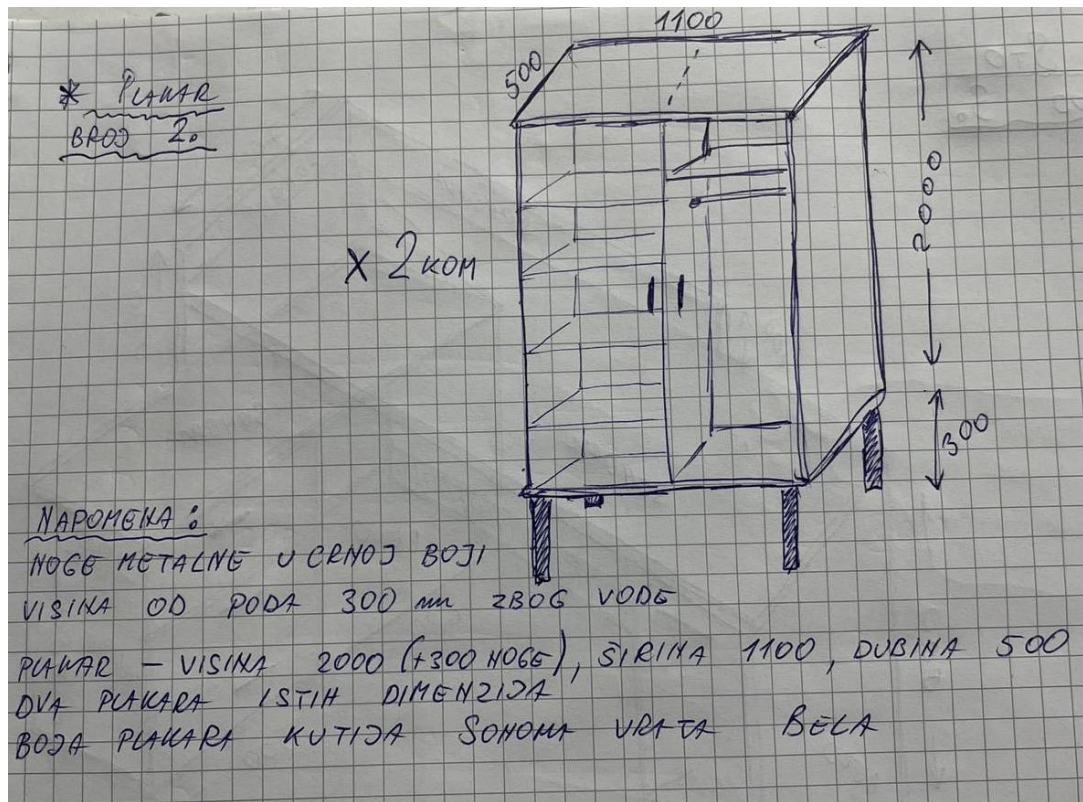 * PLAKAR
BROJ 2.
1100
500
2000
300
X 2 KOM
NAPOMENA:
NOGE METALNE U CRNOJ BOJI
VISINA OD PODA 300 mm ZBOG VODE
PLAKAR – VISINA 2000 (+300 NOGE), ŠIRINA 1100, DUBINA 500
DVA PLAKARA ISTIH DIMENZIJA
BOJA PLAKARA KUTIJA SONOMA VRATA BELA